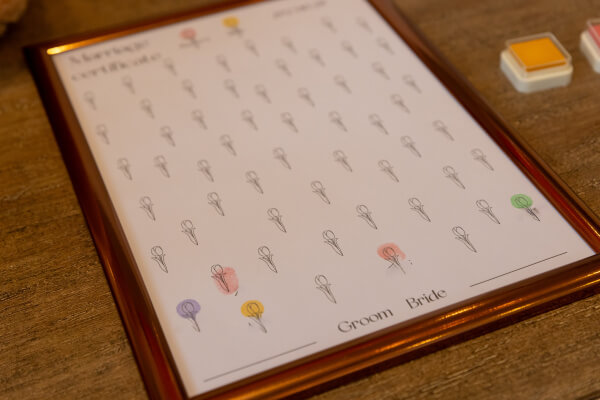 Marriage
certificate
Groom Bride